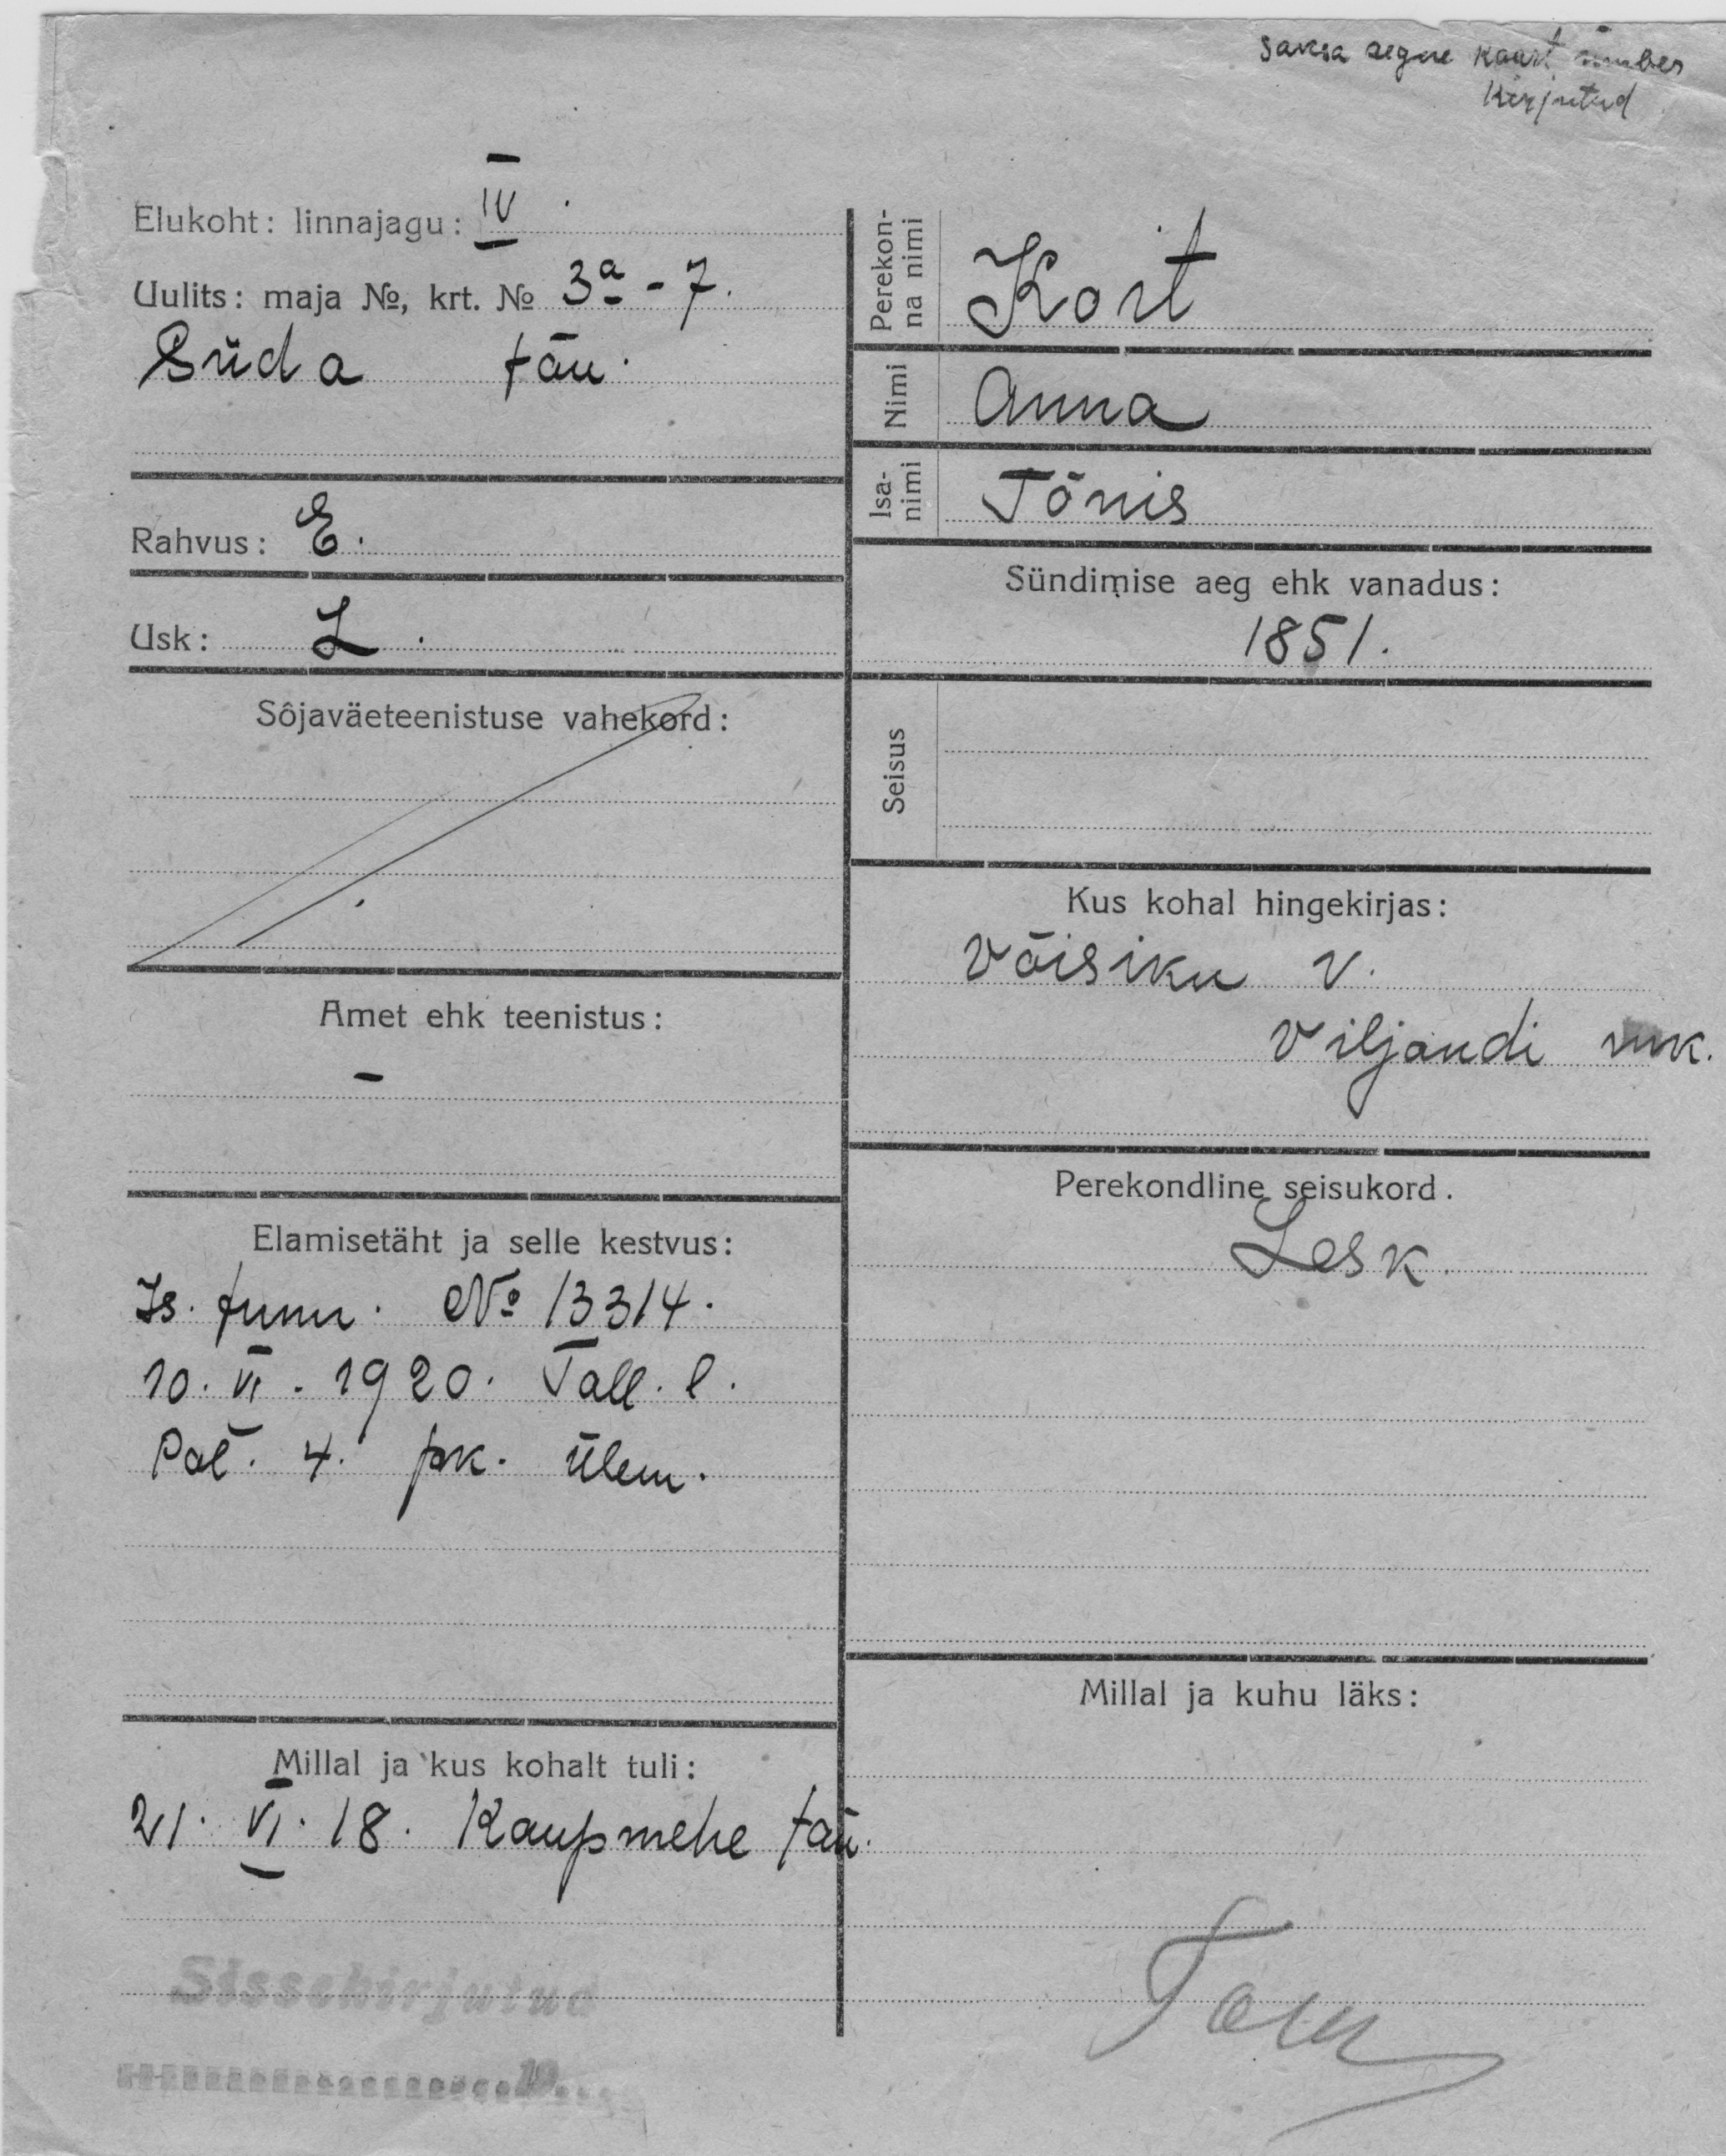 saksa aegne kaart ümber
kirjutud
Elukoht: linnajagu: IV.
Uulits: maja №, krt. № 3a - 7.
Süda tän.
Rahvus: E.
Usk: L.
Sôjaväeteenistuse vahekord:
Amet ehk teenistus:
-
Elamisetäht ja selle kestvus:
Is. tunn. № 13314.
10. VI. 1920. Tall. l.
Pol. 4. jsk. ülem.
Millal ja kus kohalt tuli:
21. VI. 18. Kaupmehe tän.
Sissekirjutud
Perekon-
na nimi
Koit
Nimi Anna
Isa-
nimi
Tõnis
Sündimise aeg ehk vanadus:
1851.
Seisus
Kus kohal hingekirjas:
Võisiku v.
Viljandi mk.
Perekondline seisukord.
Lesk
Millal ja kuhu läks: